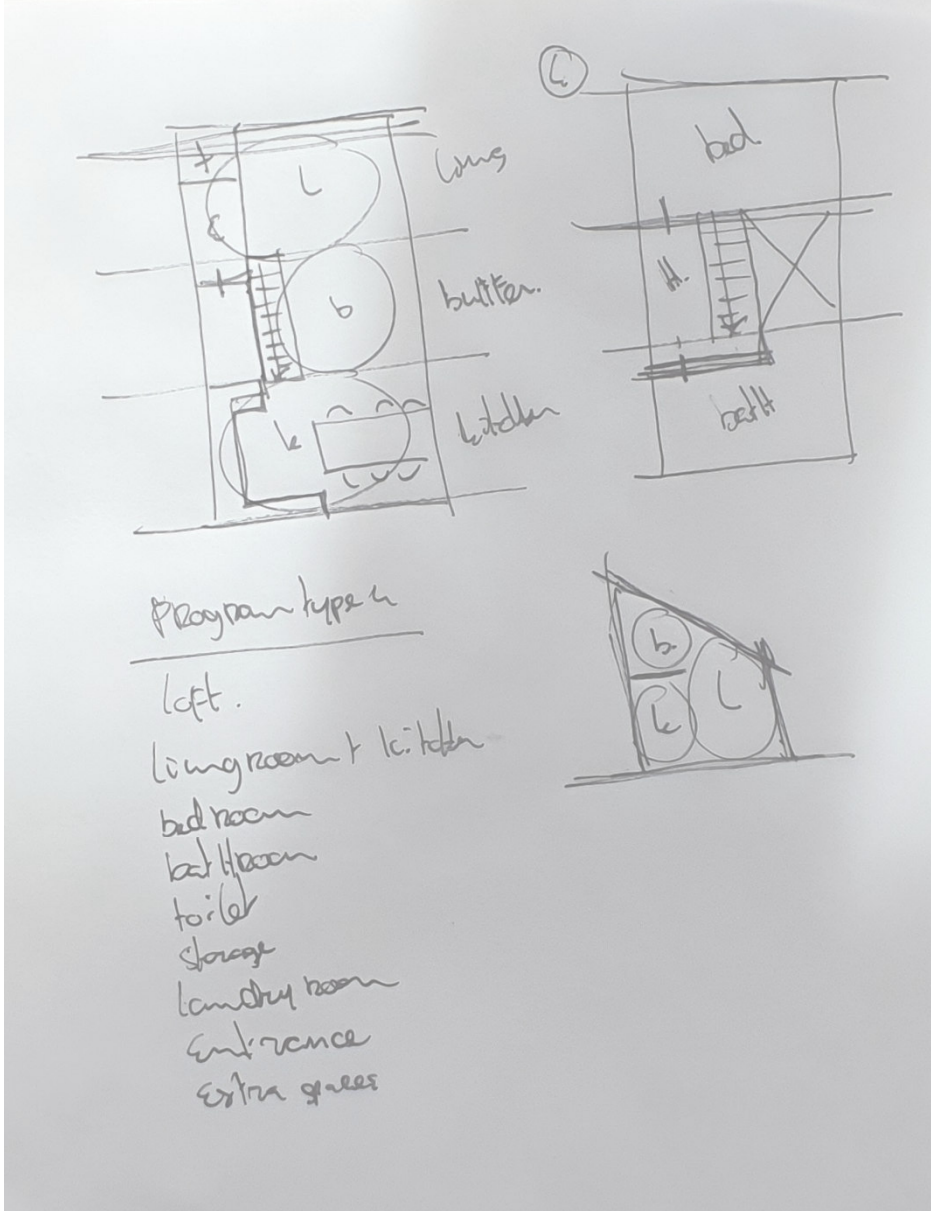 4
t
L
living
bed
b
buffer.
H.
k
kitchen
bath
Program type 4
loft.
livingroom + kitchen
bedroom
bathroom
toilet
storage
laundry room
Entrance
Extra spaces
b.
k
L